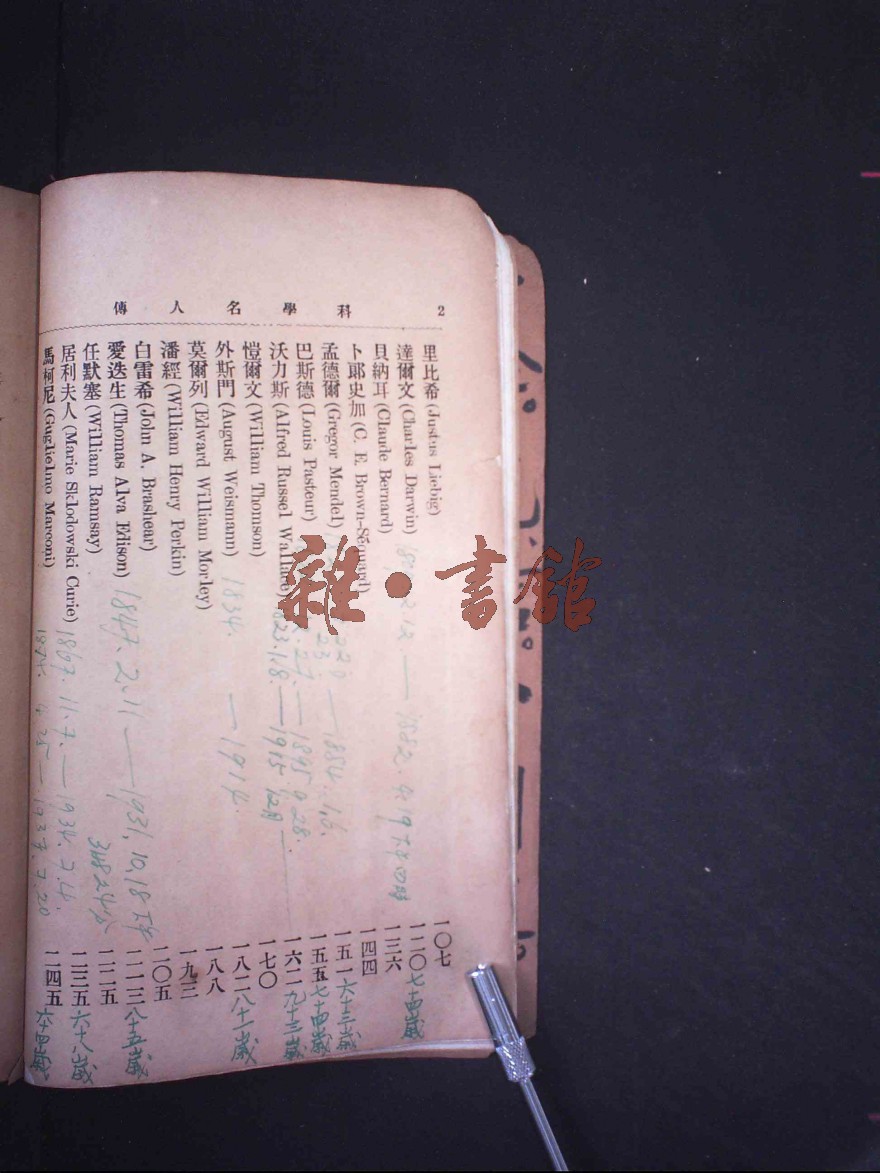 科學名人傳 2
里比希 (Justus Liebig) 一〇七
達爾文 (Charles Darwin) 2.12.—1882.4.19 下午四時 一二〇 七十四歲
貝納耳 (Claude Bernard) 一三六
卜郞史加 (C. E. Brown-Séquard) 一四四
孟德爾 (Gregor Mendel) —1884.1.6. 一五一 六十三歲
巴斯德 (Louis Pasteur) 27.—1895.9.28. 一五五 七十四歲
沃力斯 (Alfred Russel Wallace) 1823.1.8—1915.12月 一六二 九十三歲
愷爾文 (William Thomson) 一七〇
外斯門 (August Weismann) 1834.—1914. 一八二 八十一歲
莫爾列 (Edward William Morley) 一八八
潘經 (William Henry Perkin) 一九三
白雷希 (John A. Brashear) 二〇五
愛迭生 (Thomas Alva Edison) 1847.2.11—1931.10.18 上午3時24分 二一三 八十五歲
任默塞 (William Ramsay) 二二五
居利夫人 (Marie Sklodowski Curie) 1867.11.7.—1934.7.4. 二三五 六十八歲
馬柯尼 (Guglielmo Marconi) 1874.4.25—1937.7.20 二四五 六十四歲
雜·書館